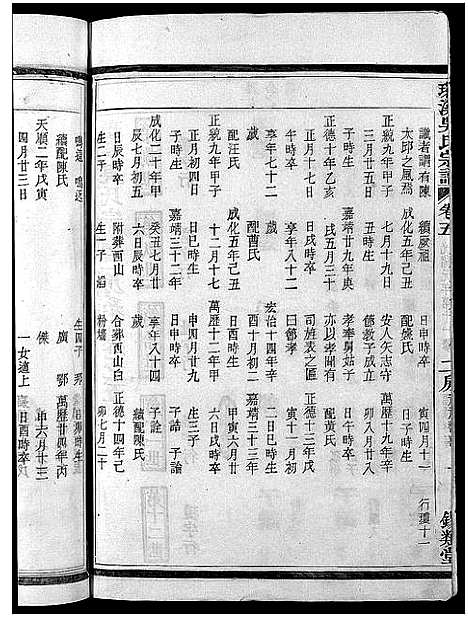 吳氏宗譜 卷五
二房
錦類堂
識者謂有陳
太邱之風焉
正統九年甲子
三月廿五日
正德十年乙亥
正月十七日
歲
正統九年甲子
正月初四日
子時生
成化二十年甲
辰七月初五
日辰時卒
生二子
續配陳氏
天順二年戊寅
四月廿三日
成化五年己丑
七月十九日
丑時生
戌五月三十
日戌時卒
享年八十二
配汪氏
成化五年己丑
十二月十七
日巳時生
嘉靖三十二年
癸丑七月廿
六日辰時卒
附葬西山
生一子
日申時卒
配盛氏
安人矢志守
節教子成立
孝奉舅姑子
亦以孝聞有
司旌表之匾
曰節孝
宏治十四年辛
酉十月初二
日酉時生
萬歷十二年甲
申四月廿九
日申時卒
享年八十四
歲
合葬西山白
生四子
廣
傑
寅四月十一
萬歷十九年辛
卯八月廿二
配黃氏
正德十三年戊
寅十一月初
二日巳時生
嘉靖三十三年
甲寅六月廿
六日戌時卒
子誥
子論
子詮
續配陳氏
正德十四年己
卯七月二十
日卯時生
萬歷廿四年丙
申六月廿三
日酉時卒
一女適上
行瓊十一